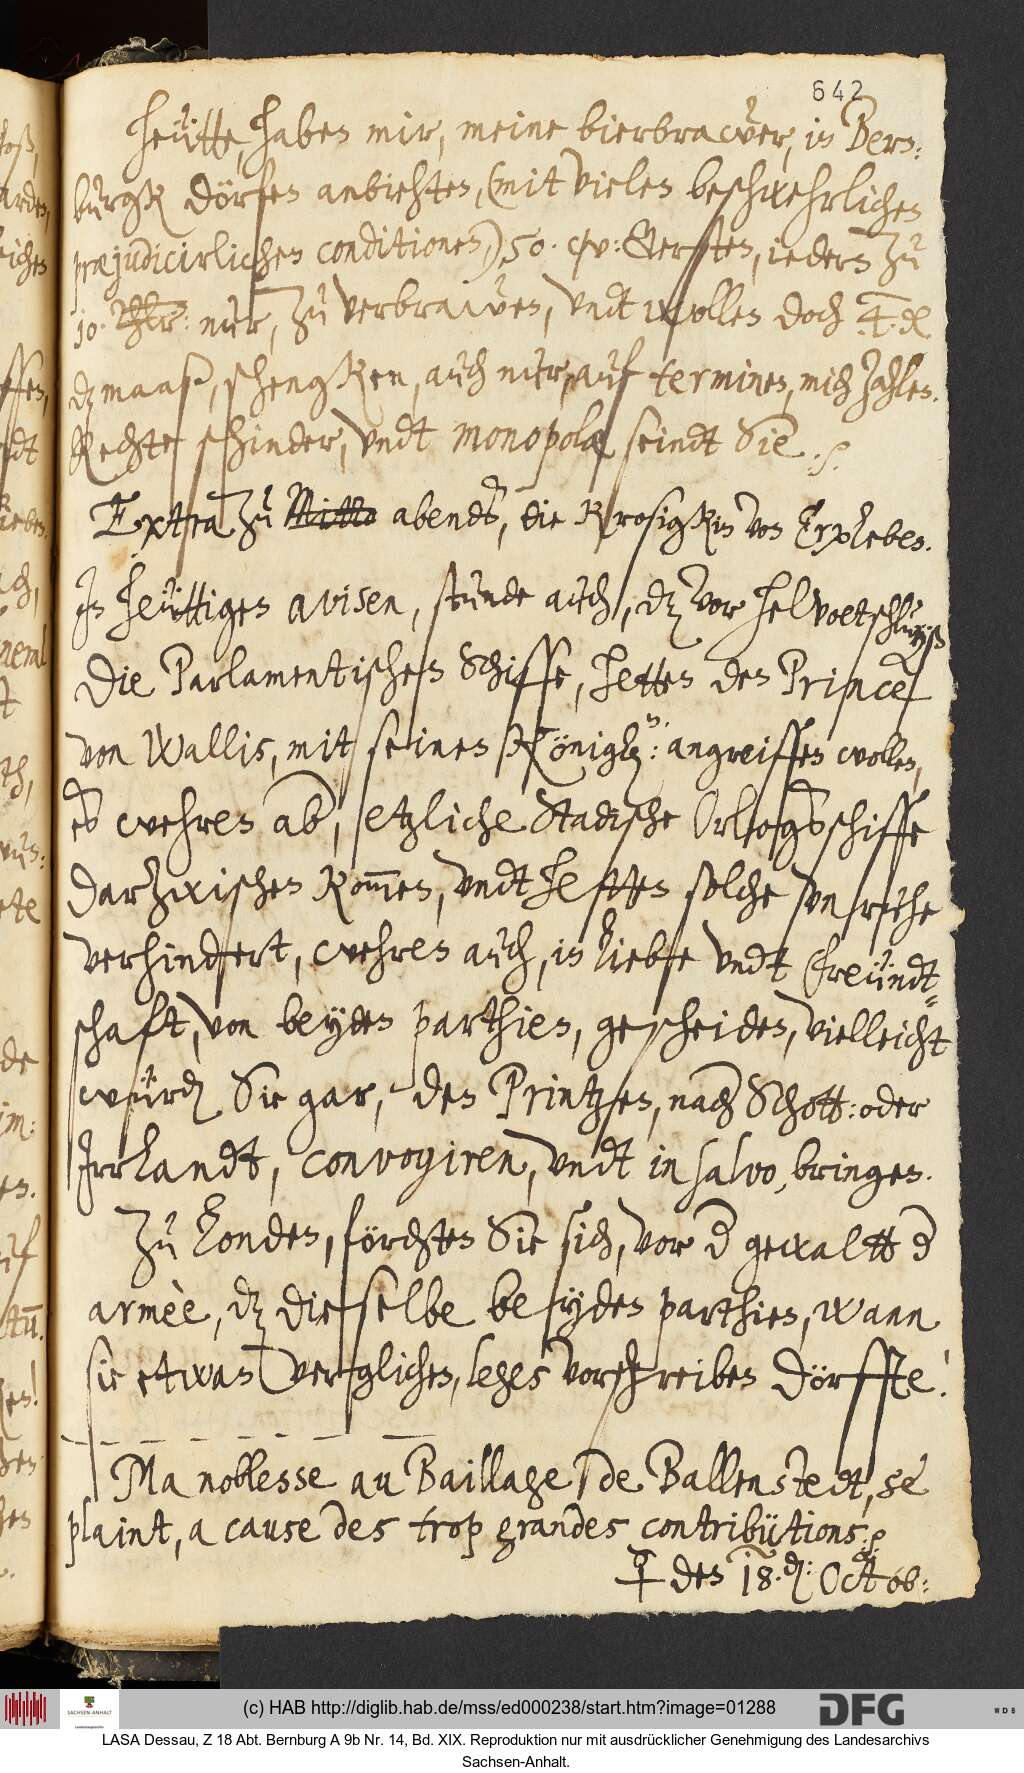 642
Heütte, haben mir, meine bierbrawer, in Bern:
burgk dörfen anbiehten, (mit vielen beschwehrlichen
præjudicirlichen conditionen) 50. W: Gersten, iedern zu
10. Thlr: nur, zu verbrawen, undt wollen doch 4. d
dz maaß, schengken, auch nur, auf termine, mich zahlen.
Rechte schinder, undt monopolæ seindt Sie. p.
Extra zu Mitta abendts, die Krosigkin von Erxleben.
In heüttigen avisen, stunde auch, dz vor Helvoetschluyß
Die Parlamentischen Schiffe, hetten den Prince
von Wallis, mit seinen Königl:n angreiffen wollen,
es wehren ab, etzliche Stadische Orlogsschiffe
darzwischen kommen, undt hetten solche unruhe
verhindert, wehren auch, in liebe undt freündt-
schaft, von beyden parthien, gescheiden, vielleicht
würden Sie gar, den Printzen, nach Schott: oder
Irrlandt, convoyiren, undt in salvo, bringen.
Zu Londen, förchten Sie sich, vor der gewaltt der
armèe, dz dieselbe beyden parthien, wann
sie etwan verglichen, leges vorschreiben dörffte!
Ma noblesse au Baillage de Ballenstedt, se
plaint, a cause des trop grandes contribütions. p.
den 18. d: Octob:
(c) HAB http://diglib.hab.de/mss/ed000238/start.htm?image=01288
DFG
WDB
SACHSEN-ANHALT
LASA Dessau, Z 18 Abt. Bernburg A 9b Nr. 14, Bd. XIX. Reproduktion nur mit ausdrücklicher Genehmigung des Landesarchivs
Sachsen-Anhalt.